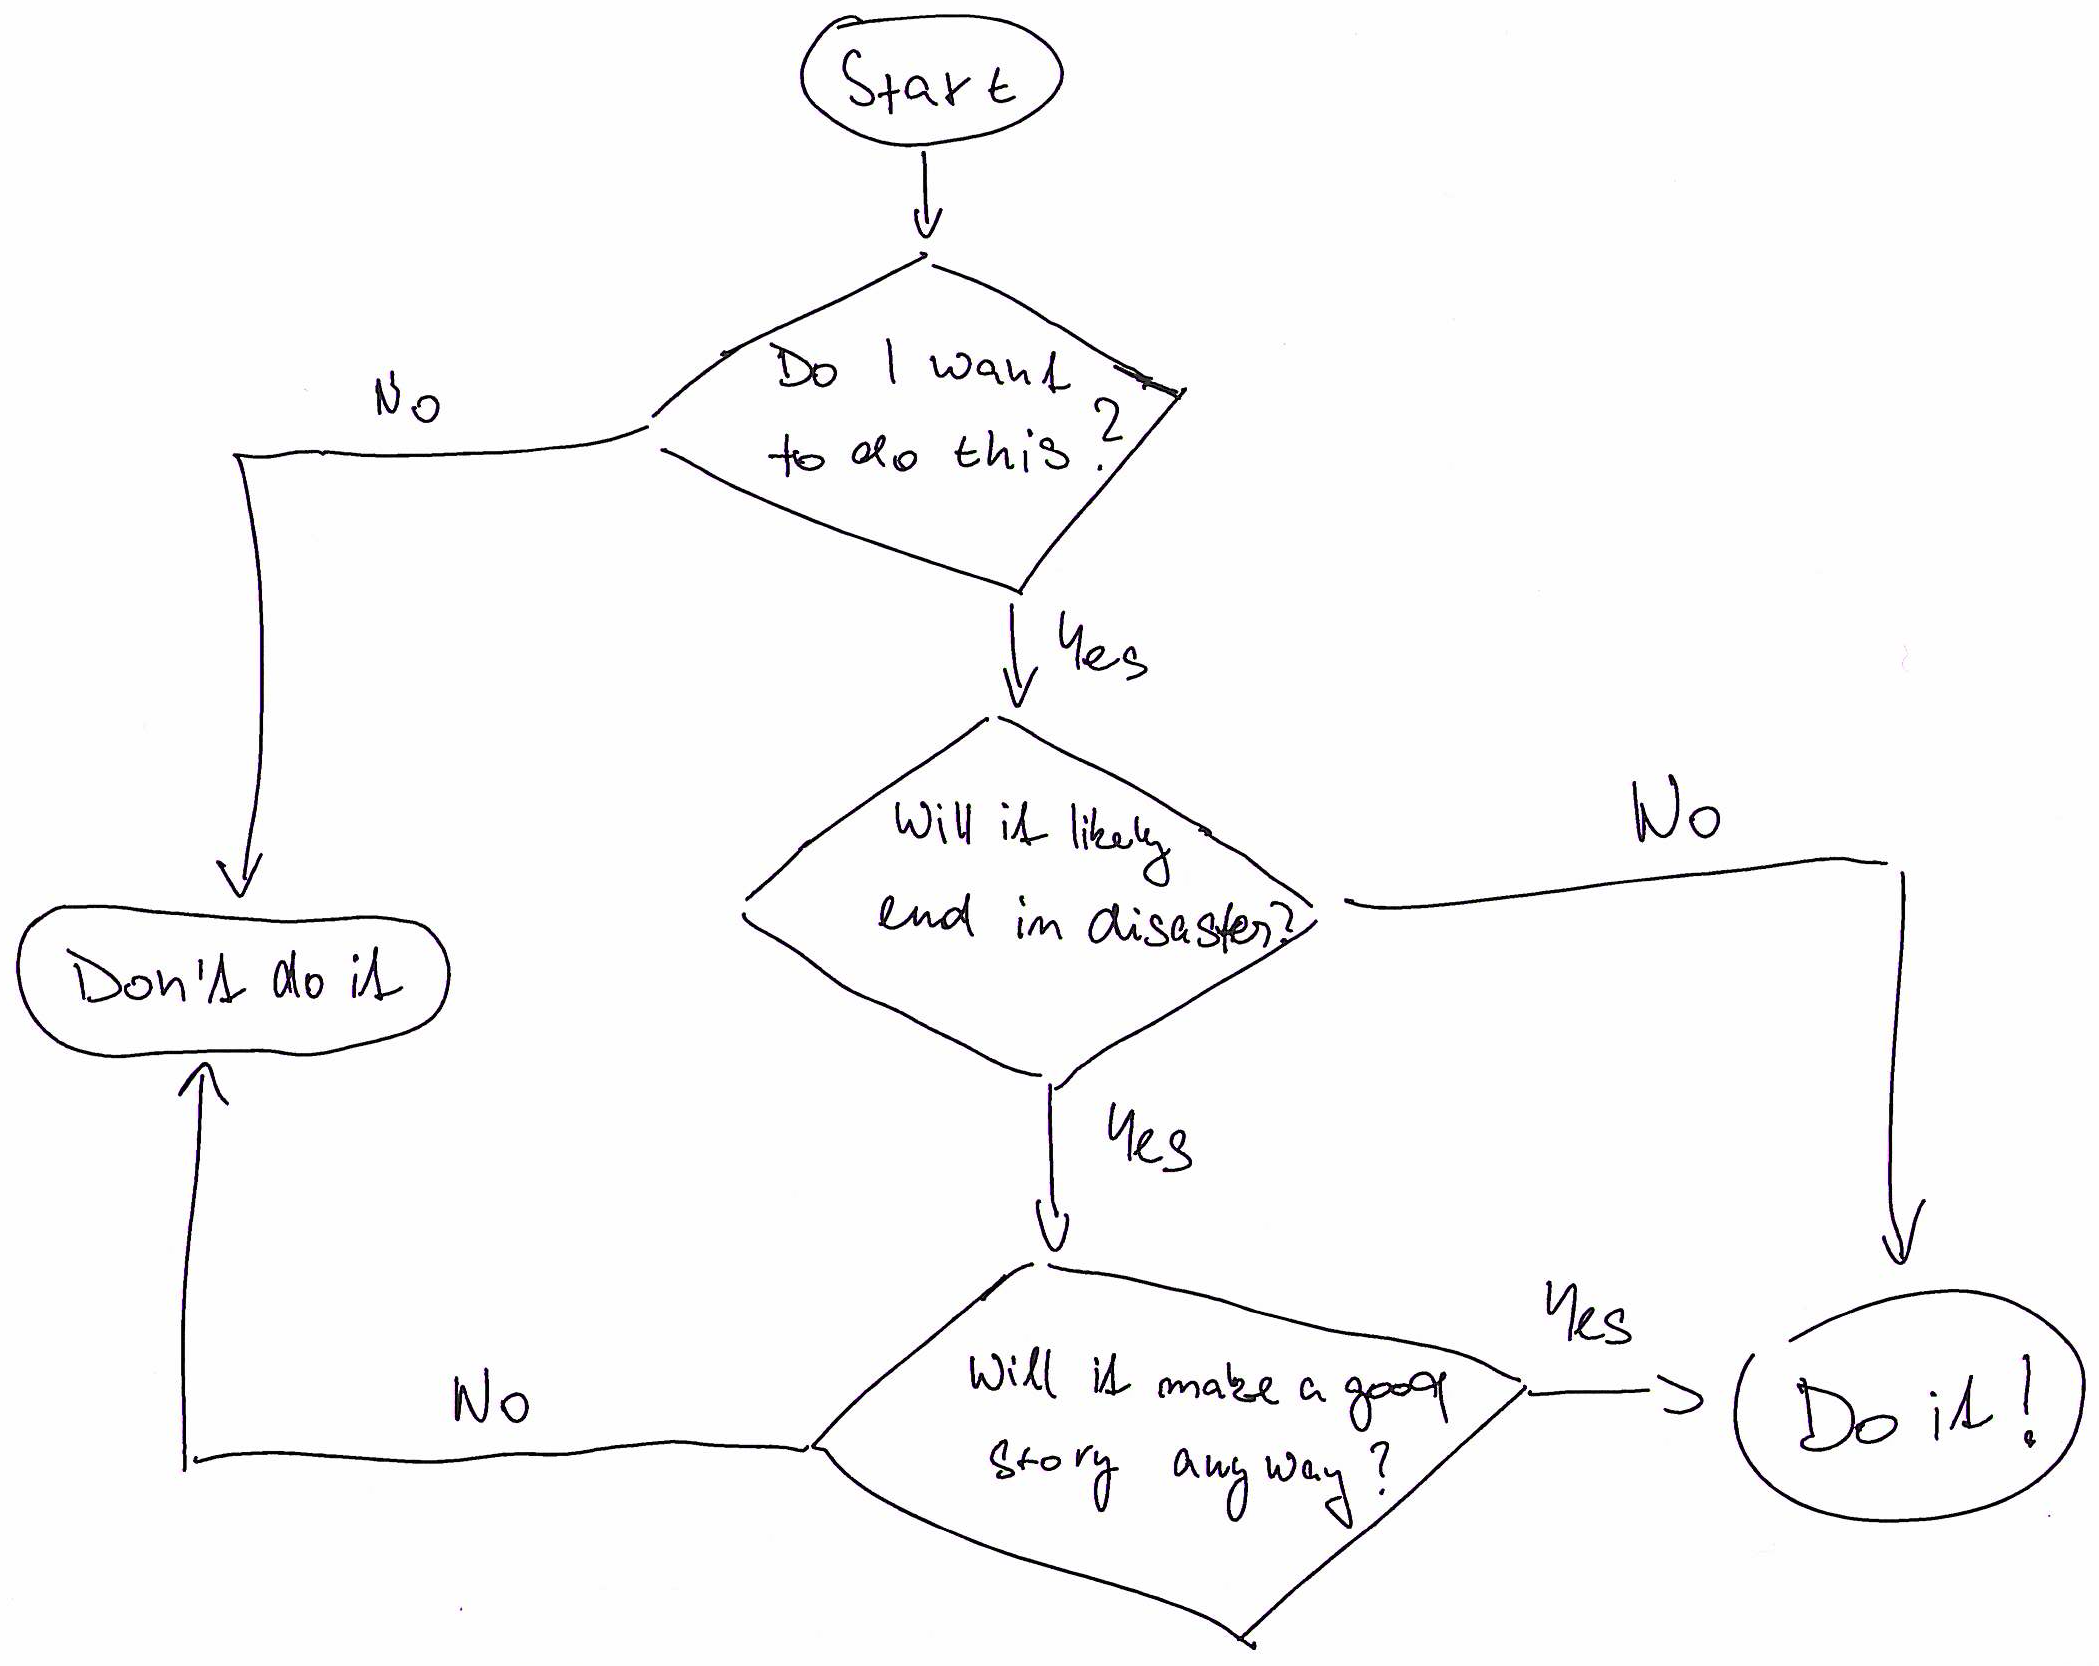 Start
Do I want
to do this?
No
Yes
Will it likely
end in disaster?
No
Don't do it
Yes
Will it make a good
story anyway?
Yes
No
Do it!